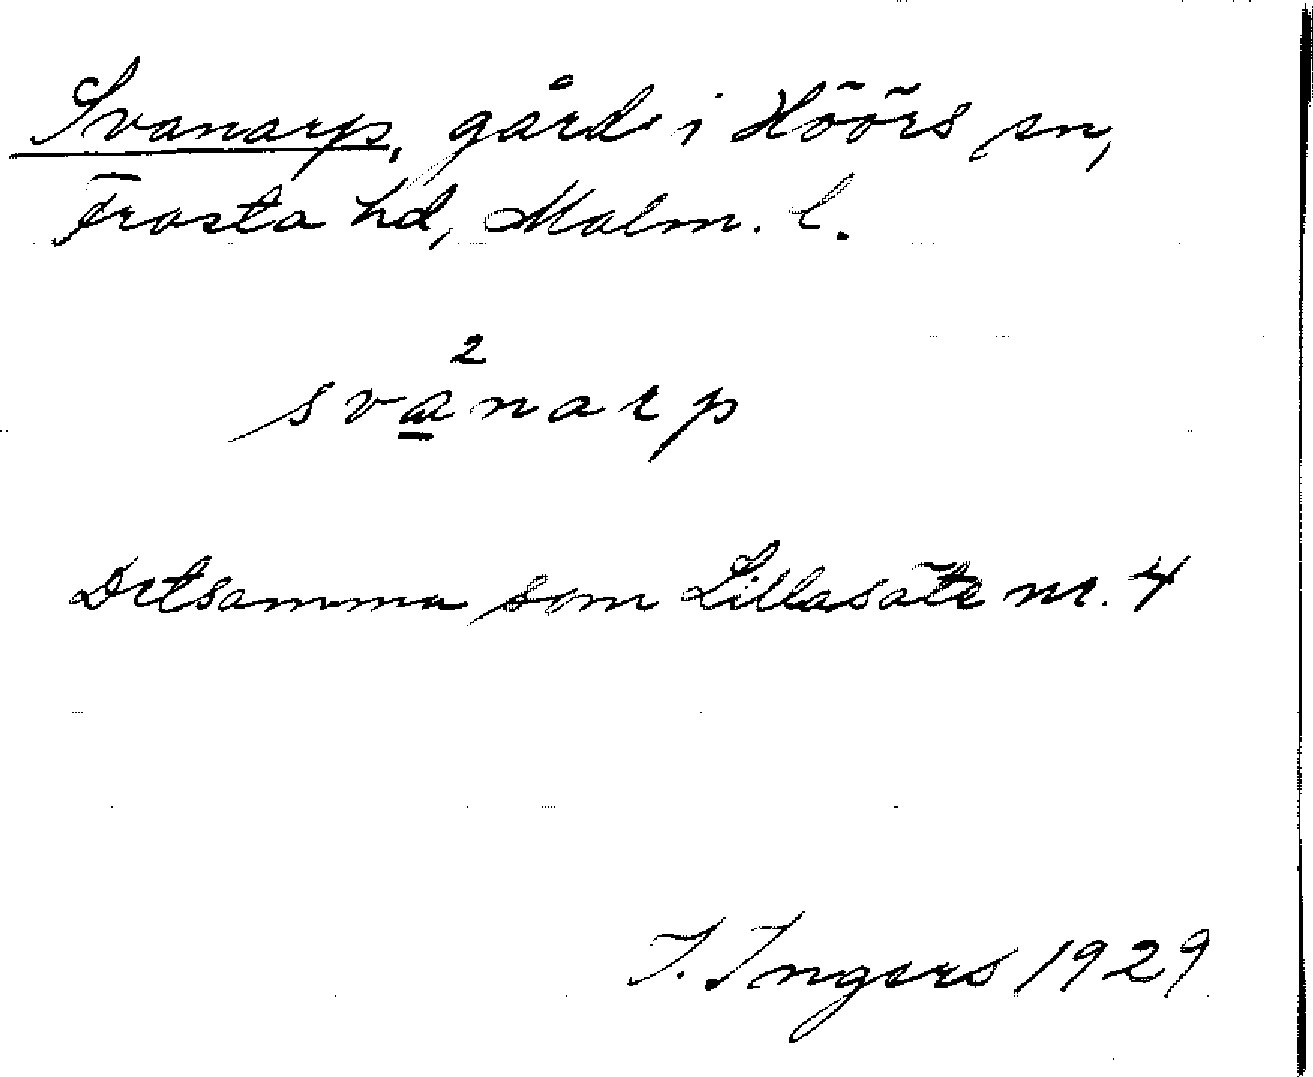 Svanarp, gård i Höörs sn,
Frosta hd, Malm. l.
2
svanarp
Detsamma som Lillasäte nr. 4
I. Ingers 1929